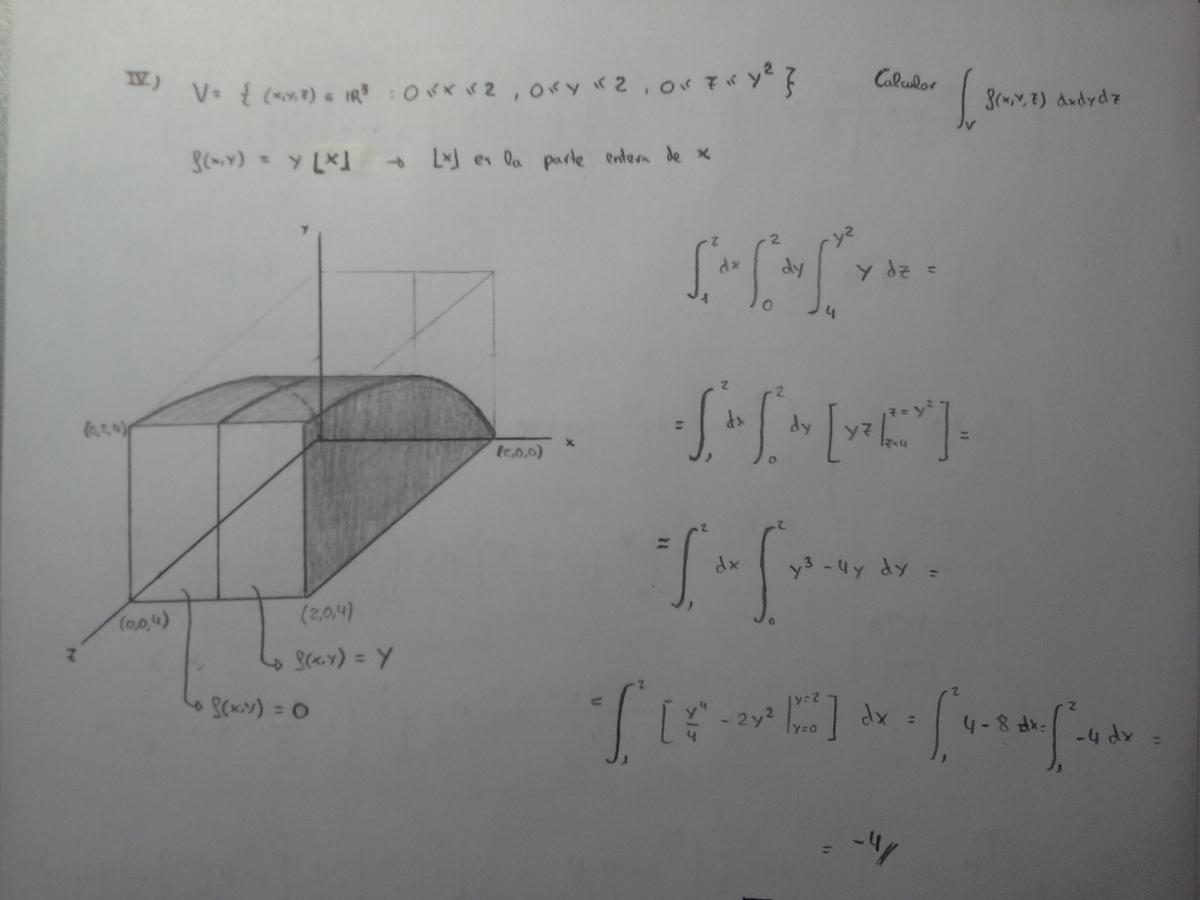 IV) V= { (x,y,z) ∈ ℝ³ : 0 ≤ x ≤ 2 , 0 ≤ y ≤ 2 , 0 ≤ z ≤ y² } Calcular ∫_V f(x,y,z) dxdydz
f(x,y) = y ⌊x⌋ → ⌊x⌋ es la parte entera de x
y
x
z
(0,2,4)
(2,0,0)
(0,0,4)
(2,0,4)
f(x,y) = y
f(x,y) = 0
∫_1^2 dx ∫_0^2 dy ∫_4^{y²} y dz =
= ∫_1^2 dx ∫_0^2 dy [ yz |_{z=4}^{z=y²} ] =
= ∫_1^2 dx ∫_0^2 y³ - 4y dy =
= ∫_1^2 [ y⁴/4 - 2y² |_{y=0}^{y=2} ] dx = ∫_1^2 4 - 8 dx = ∫_1^2 -4 dx =
= -4//